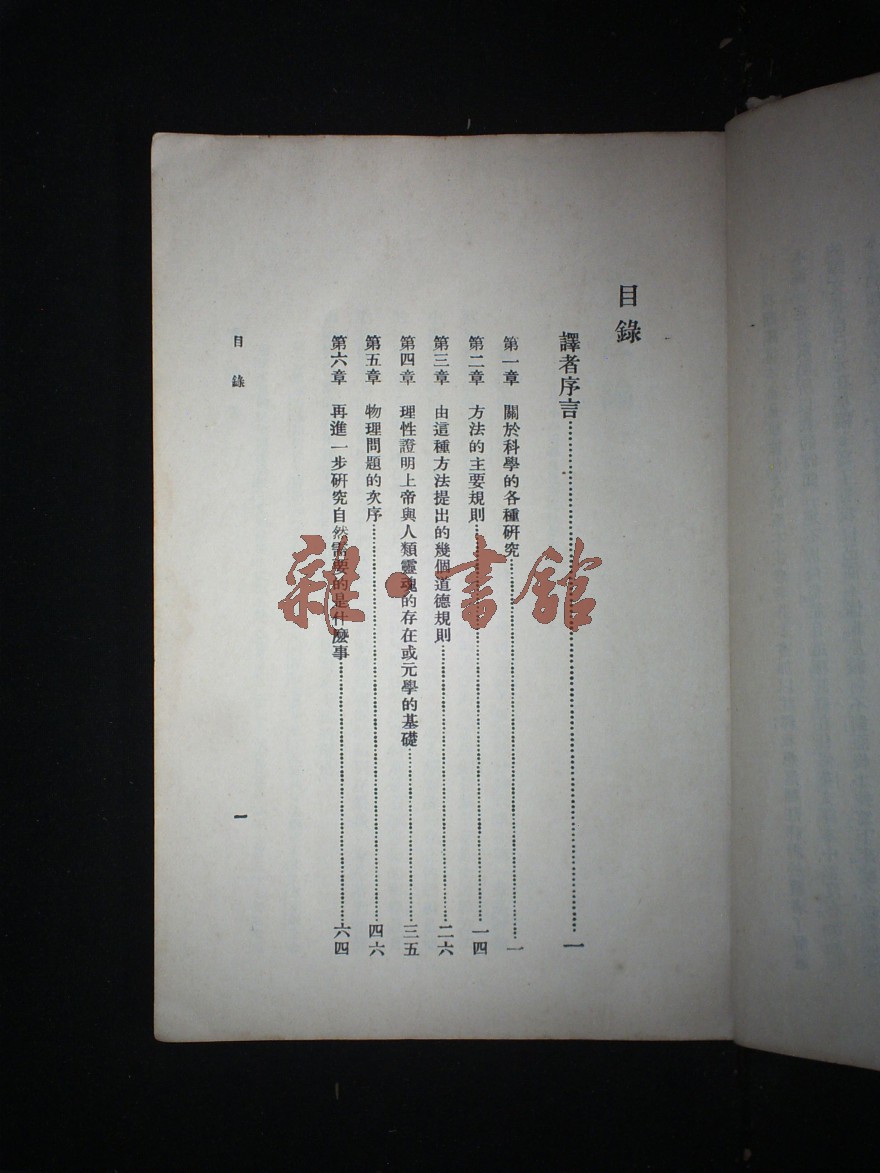 目錄
譯者序言……一
第一章 關於科學的各種研究……一
第二章 方法的主要規則……一四
第三章 由這種方法提出的幾個道德規則……二六
第四章 理性證明上帝與人類靈魂的存在或元學的基礎……三五
第五章 物理問題的次序……四六
第六章 再進一步研究自然需要的是什麼事……六四
目錄 一
雜·書館